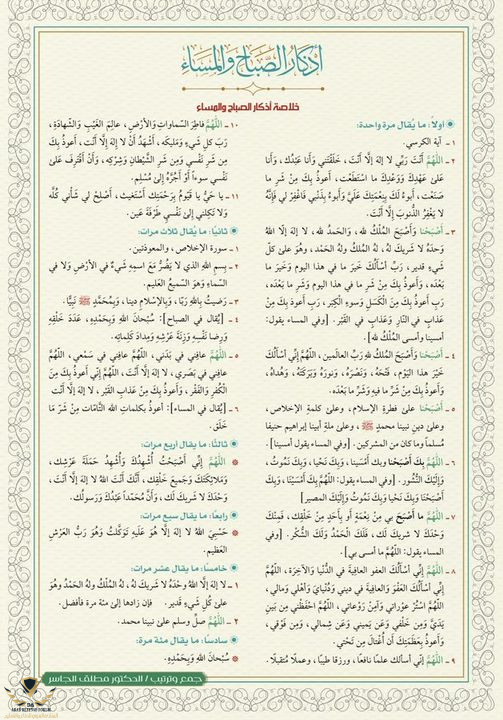 أذكار الصباح والمساء
خلاصة أذكار الصباح والمساء
أولاً: ما يُقال مرة واحدة:
١ - آية الكرسي.
٢ - اللَّهُمَّ أَنْتَ رَبِّي لا إلَهَ إلَّا أَنْتَ، خَلَقْتَنِي وَأَنا عَبْدُكَ، وَأَنا
عَلى عَهْدِكَ وَوَعْدِكَ ما اسْتَطَعْت، أَعوذُ بِكَ مِنْ شَرِّ ما
صَنَعْت، أَبوءُ لَكَ بِنِعْمَتِكَ عَلَيَّ وَأَبوءُ بِذَنْبِي فَاغْفِرْ لي فَإِنَّهُ
لا يَغْفِرُ الذُّنوبَ إِلَّا أَنْتَ.
٣ - أَصْبَحْنا وَأَصْبَحَ المُلْكُ لله، وَالحَمدُ لله، لا إلهَ إلَّا اللهُ
وَحدَهُ لا شَريكَ لهُ، لهُ المُلكُ ولهُ الحَمْد، وهوَ على كلّ
شَيءٍ قدير، رَبِّ أسْألُكَ خَيرَ ما في هذا اليوم وَخَيرَ ما
بَعْدَه، وَأَعوذُ بِكَ مِنْ شَرِّ ما في هذا اليوم وَشَرِّ ما بَعْدَه،
رَبِّ أَعوذُ بِكَ مِنَ الْكَسَلِ وَسوءِ الْكِبَر، رَبِّ أَعوذُ بِكَ مِنْ
عَذابٍ في النّارِ وَعَذابٍ في القَبْر. [وفي المساء يقول:
أمسينا وأمسى المُلْكُ لله].
٤ - أَصْبَحْنا وَأَصْبَحَ المُلكُ للهِ رَبِّ العالَمين، اللَّهُمَّ إِنِّي أسْألُكَ
خَيْرَ هذا اليَوْم، فَتْحَهُ، وَنَصْرَهُ، وَنورَهُ وَبَرَكَتَهُ، وَهُداهُ،
وَأَعوذُ بِكَ مِنْ شَرِّ ما فيهِ وَشَرِّ ما بَعْدَه.
٥ - أَصْبَحْنا على فطرةِ الإسلام، وعلى كلمةِ الإخلاص،
وعلى دينِ نبينا محمدٍ ﷺ، وعلى ملةِ أبينا إبراهيم حنيفا
مُسلماً وما كان من المشركين. [وفي المساء يقول أمسينا].
٦ - اللَّهُمَّ بِكَ أَصْبَحْنا وبك أمسَينا، وَبِكَ نَحْيا، وَبِكَ نَمُوتُ،
وَإِلَيْكَ النُّشُور. [وفي المساء يقول: اللَّهُمَّ بِكَ أَمْسَيْنَا، وَبِكَ
أَصْبَحْنَا وَبِكَ نَحْيا وَبِكَ نَمُوتُ وَإِلَيْكَ المصير]
٧ - اللَّهُمَّ ما أصبَحَ بي مِنْ نِعْمَةٍ أو بِأَحَدٍ مِنْ خَلْقِك، فَمِنْكَ
وَحْدَكَ لا شريكَ لَك، فَلَكَ الحَمْدُ وَلَكَ الشُّكْر. [وفي
المساء يقول: اللَّهُمَّ ما أمسى بي].
٨ - اللَّهُمَّ إِنِّي أَسأَلُكَ العفو العافِيةَ في الدُّنيا وَالآخِرَة، اللَّهُمَّ
إِنِّي أسألُكَ العَفْوَ وَالعافِيةَ في ديني وَدُنْيايَ وأهْلي وَمالي،
اللَّهُمَّ استُرْ عَوْراتي وَآمِنْ رَوْعاتي، اللَّهُمَّ احْفَظْني مِن بَينِ
يَدَيَّ وَمِن خَلْفي وَعَن يَميني وَعَن شِمالي، وَمِن فَوْقي،
وَأَعوذُ بِعَظَمَتِكَ أن أُغتالَ مِن تَحْتي.
٩ - اللَّهُمَّ إِنِّي أسألك علماً نافعاً، ورزقا طيبا، وعملا مُتَقبَّلا.
١٠ - اللَّهُمَّ فاطِرَ السَّماواتِ وَالأَرْضِ، عالِمَ الغَيْبِ وَالشَّهادَةِ،
رَبَّ كلِ شَيءٍ وَمَليكَه، أَشْهَدُ أَنْ لا إِلهَ إِلَّا أَنْت، أَعوذُ بِكَ
مِن شَرِّ نَفْسي وَمِن شَرِّ الشَّيْطانِ وَشِرْكِه، وَأَنْ أَقْتَرِفَ عَلى
نَفْسي سوءاً أَوْ أَجُرَّهُ إِلى مُسْلِم.
١١ - يا حيُّ يا قيّومُ بِرَحْمتِكَ أَسْتَغيث، أَصْلِحْ لي شَأني كُلَّه
وَلا تَكِلني إِلى نَفْسي طَرْفَةَ عَين.
ثانيًا: ما يُقال ثلاث مرات:
١ - سورة الإخلاص، والمعوذتين.
٢ - بِسمِ اللهِ الذي لا يَضُرُّ مَعَ اسمِهِ شَيءٌ في الأرْضِ وَلا في
السّماءِ وَهوَ السّميعُ العَليم.
٣ - رَضيتُ بِاللهِ رَبًا، وَبِالإسلامِ دينا، وَبِمُحَمَّدٍ ﷺ نَبِيًّا.
٤ - [يُقال في الصباح]: سُبْحانَ اللهِ وَبِحَمْدِه، عَدَدَ خَلْقِه
وَرِضا نَفْسِه وَزِنَةَ عَرْشِه وَمِدادَ كَلِماتِه.
٥ - اللَّهُمَّ عافِني في بَدَني، اللَّهُمَّ عافِني في سَمْعي، اللَّهُمَّ
عافِني في بَصَري، لا إلهَ إلَّا أَنْتَ، اللَّهُمَّ إِنِّي أَعوذُ بِكَ مِنَ
الْكُفرِ وَالفَقْرِ، وَأَعوذُ بِكَ مِنْ عَذابِ القَبْرِ، لا إلهَ إلَّا أَنْتَ
٦ - [يُقال في المساء]: أعوذُ بِكلماتِ اللهِ التَّامَّاتِ مِنْ شَرِّ مَا
خَلَق.
ثالثًا: ما يقال أربع مرات:
اللَّهُمَّ إِنِّي أَصْبَحْتُ أُشْهِدُكَ وَأُشْهِدُ حَمَلَةَ عَرْشِك،
وَمَلائِكَتَكَ وَجَميعَ خَلْقِك، أَنَّكَ أَنْتَ اللهُ لا إلهَ إلَّا أَنْتَ،
وَحْدَكَ لا شَريكَ لَك، وَأَنَّ مُحَمَّداً عَبْدُكَ وَرَسولُك.
رابعًا: ما يقال سبع مرات:
حَسْبِيَ اللهُ لا إلهَ إلَّا هُوَ عَلَيهِ تَوَكَّلتُ وَهُوَ رَبُّ العَرْشِ
العَظيم.
خامسًا: ما يقال عشر مرات:
١ - لا إلهَ إلَّا اللهُ وحْدَهُ لا شَريكَ لهُ، لهُ المُلْكُ ولهُ الحَمْدُ وهُوَ
على كُلِّ شَيءٍ قَدير. فإن زادها إلى مئة مرة فأفضل.
٢ - اللَّهُمَّ صلِّ وسلم على نبينا محمد.
سادسًا: ما يقال مئة مرة:
سُبْحانَ اللهِ وَبِحَمْدِهِ.
جمع وترتيب / الدكتور مطلق الجاسر